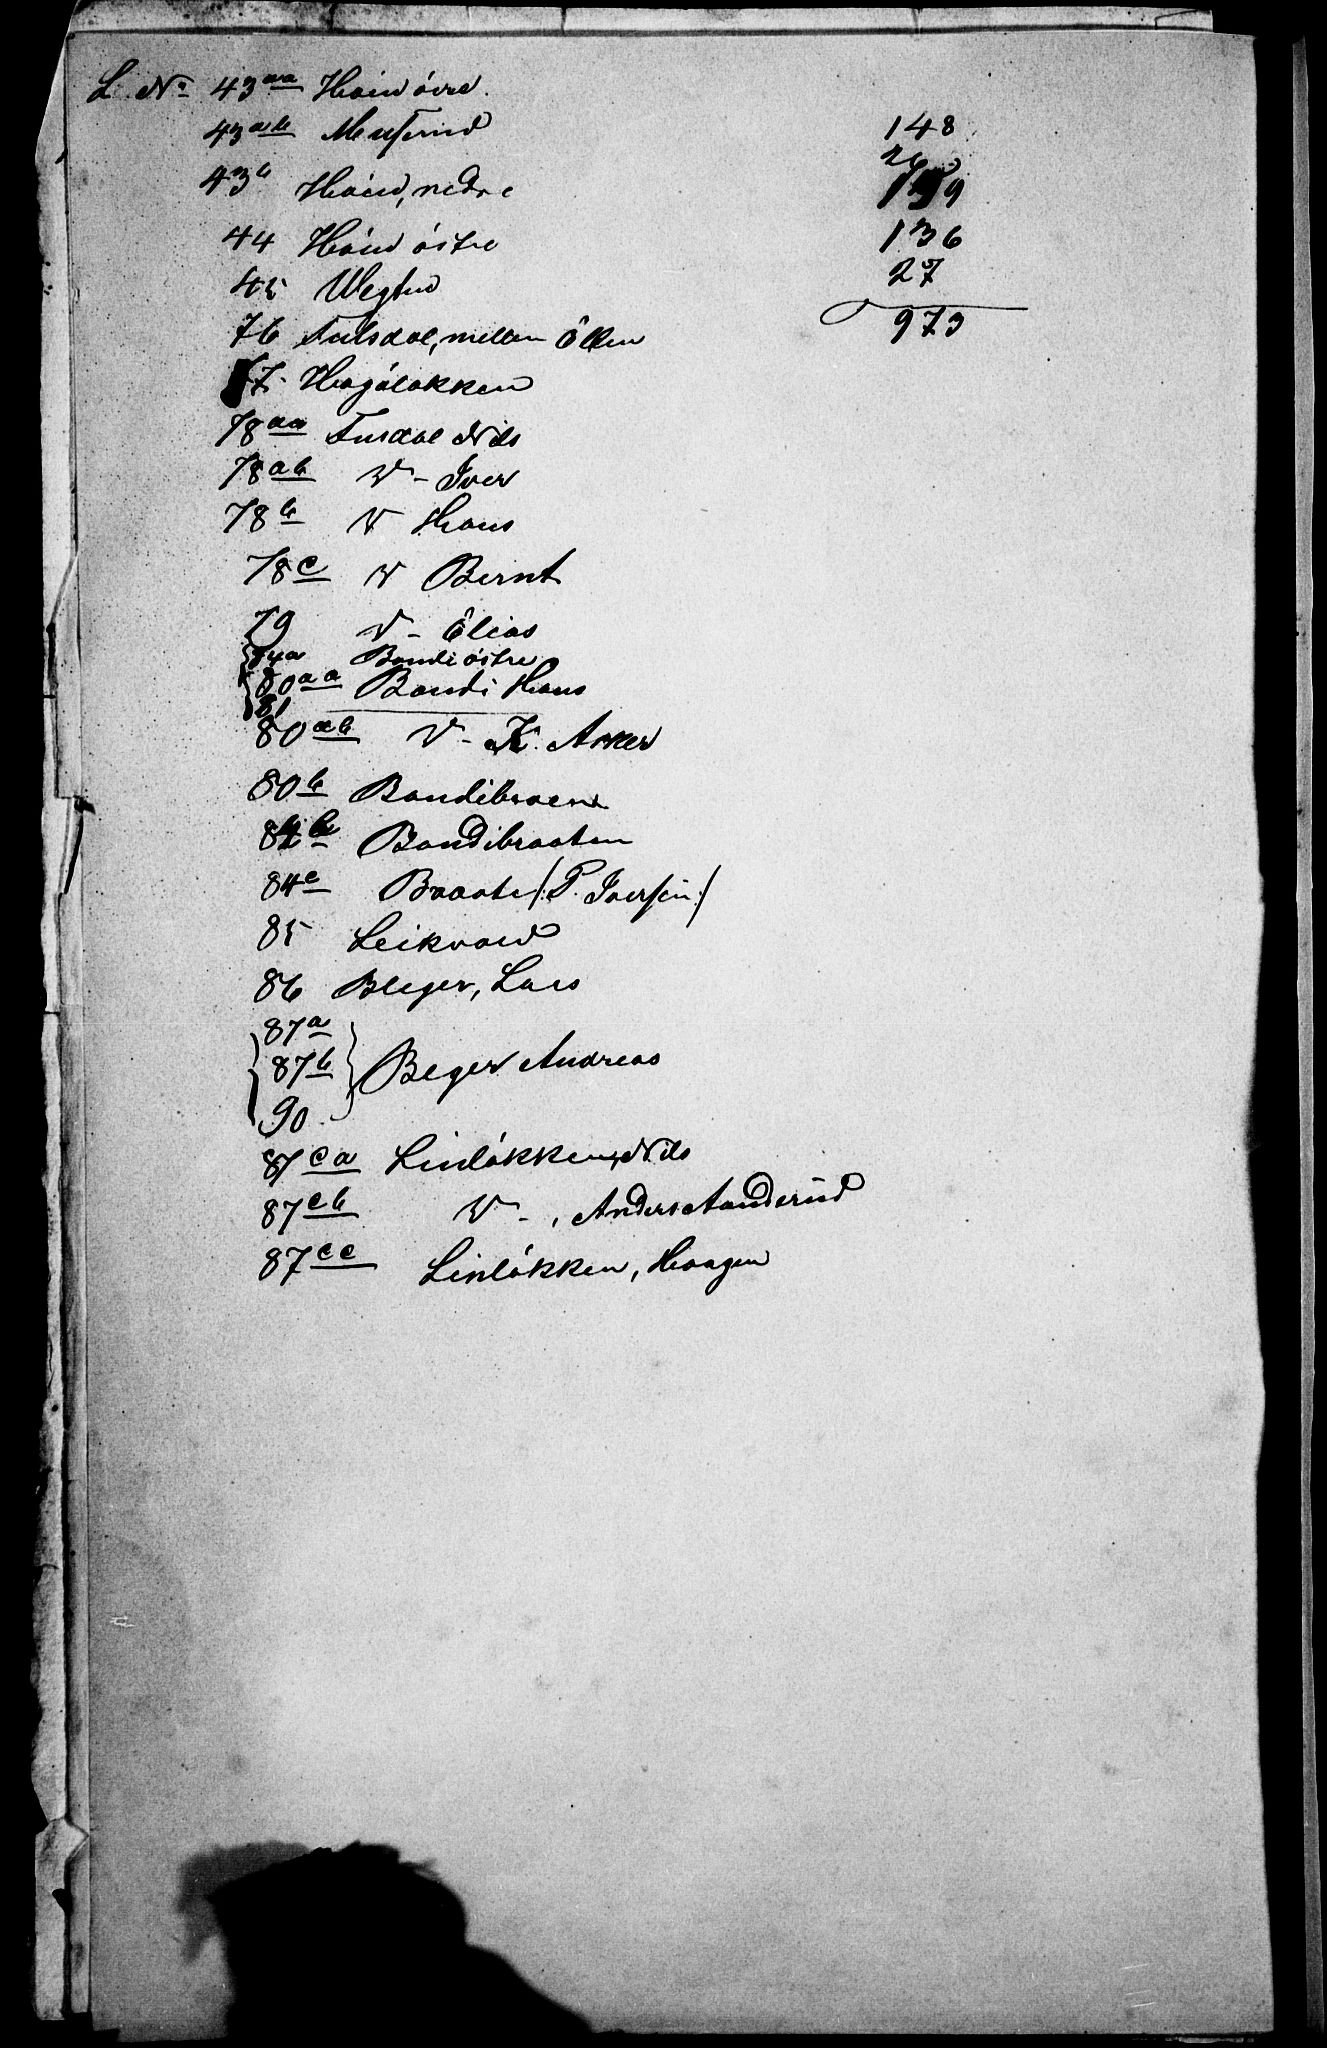 L. No 43aa Haug övre.
43ab Musterud 148
43b Haug, nedre 139
44 Haug östre 136
45 Wegtun 27
973
76 Fulsdal, mellem Ellen
77. Hagalökken
78aa Fusdal Nils
78ab V - Iver
78b V Hans
78c V Bernt
79 V - Elias
84a Bondi östre
80aa Bondi Hans
81
80ab V - K. Asker
80b Bondibroen
84b Bondibraaten
84c Braate /: P. Iversen :/
85 Leikvold
86 Bleger, Lars
87a
87b Bleger Andreas
90.
87ca Linlökken, Nils
87cb V - , Anders Aanderud
87cc Linlökken, Haagen